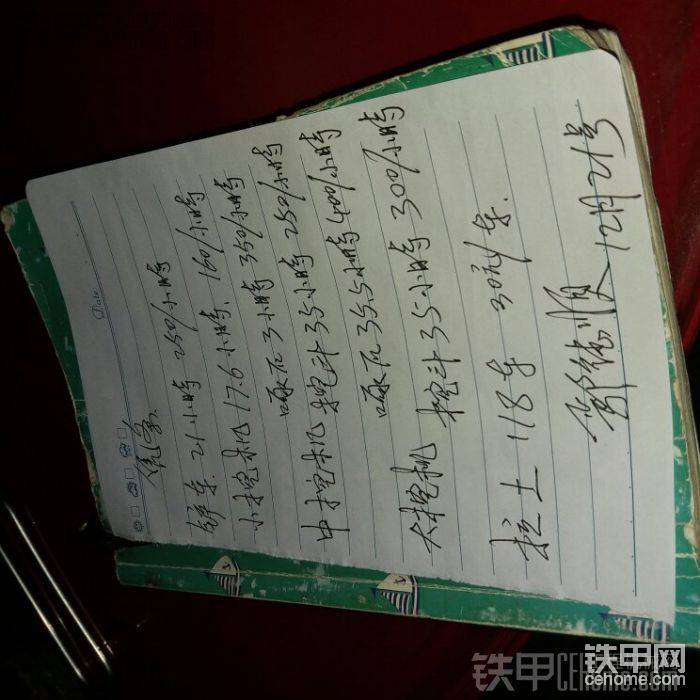 Date
铲车. 21小时 250/小时
小挖机 17.6小时. 160/小时
啄石 3小时 350/小时
中挖机 挖斗35小时 250/小时
啄石 35.5小时 400/小时
大挖机 挖斗35小时 300/小时
拉土 118车 30元/车.
12月21号
铁甲网
cehome.com